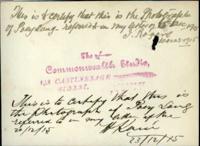 This is to certify that this is the Photograph
of Pay Lang referred in my letter
J. Rogers
The
Commonwealth Studio,
CASTLEREAGH
STREET.
This is to certify that this is
the photograph of Pay Lang
referred to in my letter of the
20/12/15
23/12/15